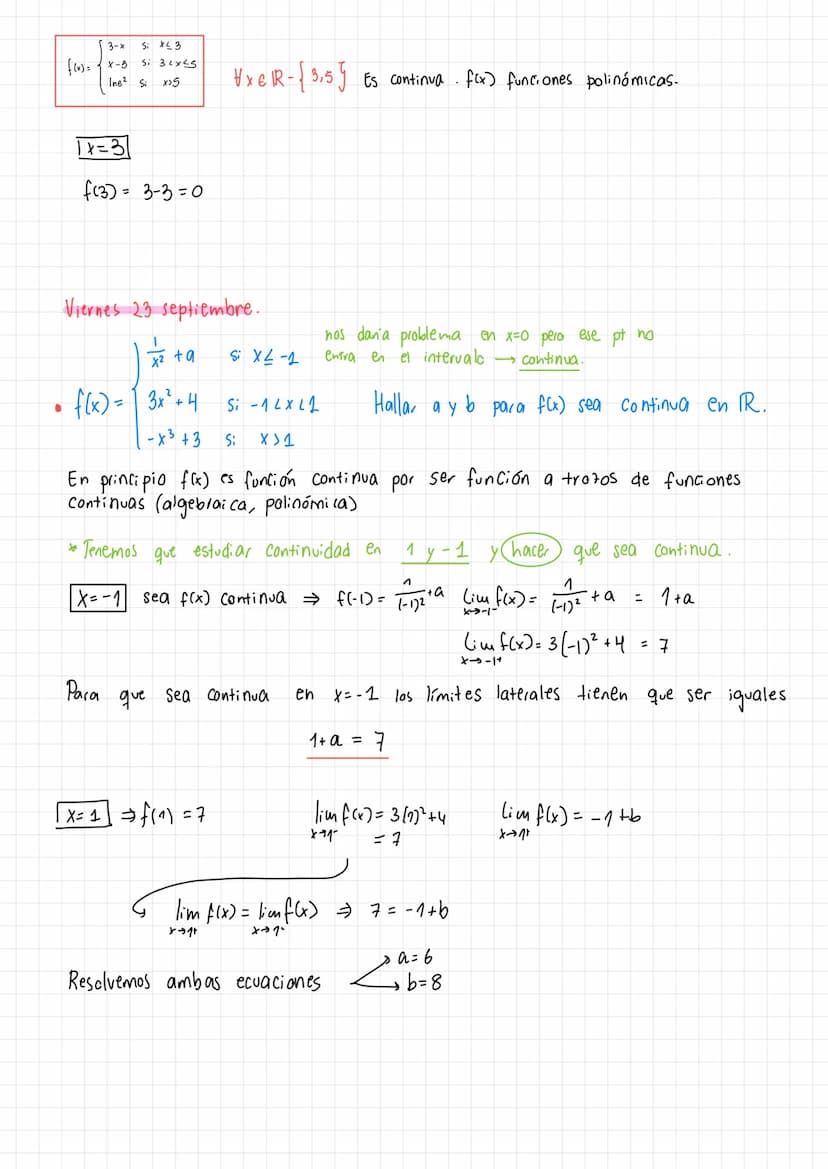 f(x) = { 3-x si x≤3
x-3 si 3<x≤5
lne² si x>5
∀x∈ℝ-{3,5} Es continua. f(x) funciones polinómicas.
x=3
f(3) = 3-3 = 0
Viernes 23 septiembre.
nos daría problema en x=0 pero ese pt no
entra en el intervalo → continua.
• f(x) = { 1/x² + a si x≤-1
3x²+4 si -1<x<1
-x³+3 si x>1
Hallar a y b para f(x) sea continua en ℝ.
En principio f(x) es función continua por ser función a trozos de funciones
continuas (algebraica, polinómica)
* Tenemos que estudiar continuidad en 1 y -1 y hacer que sea continua.
x=-1 sea f(x) continua ⇒ f(-1) = 1/(-1)² + a lim x→-1⁻ f(x) = 1/(-1)² + a = 1+a
lim x→-1⁺ f(x) = 3(-1)² + 4 = 7
Para que sea continua en x=-1 los límites laterales tienen que ser iguales
1+a = 7
x=1 ⇒ f(1) = 7 lim x→1⁻ f(x) = 3(1)²+4 lim x→1⁺ f(x) = -1+b
= 7
lim x→1⁺ f(x) = lim x→1⁻ f(x) ⇒ 7 = -1+b
Resolvemos ambas ecuaciones → a=6
→ b=8